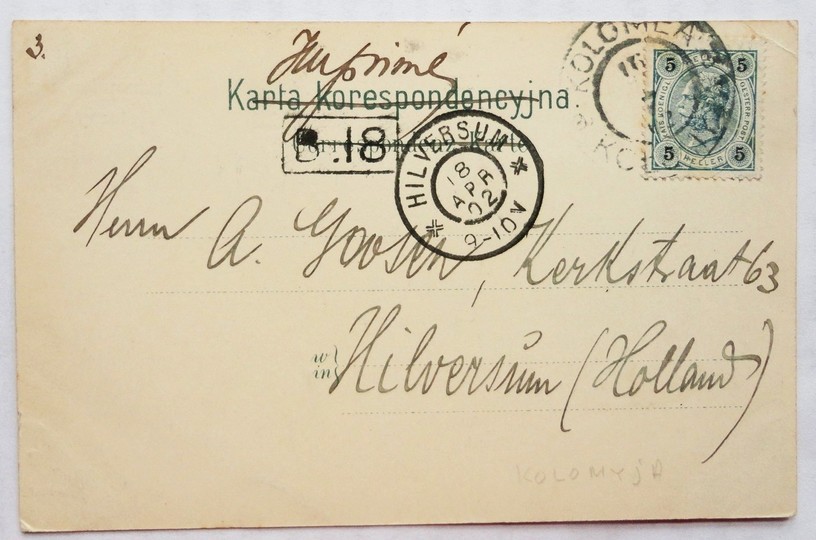 3.
Imprimé
Karta Korespondencyjna.
Correspondenz-Karte
B.18
HILVERSUM
18
APR
02
9-10V
KOLOMEA
5 5
5 5
HELLER
Herrn A. Goosen, Kerkstraat 63
w/in
Hilversum (Holland)
KOLOMYJA